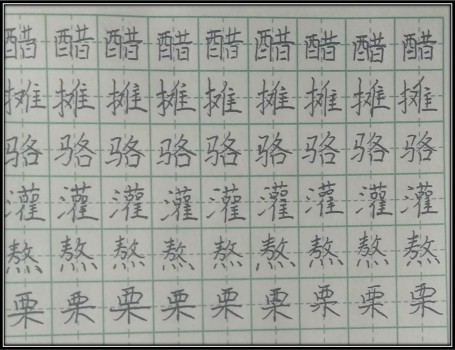 醋醋醋醋醋醋醋醋醋
摊摊摊摊摊摊摊摊摊
骆骆骆骆骆骆骆骆骆
灌灌灌灌灌灌灌灌灌
熬熬熬熬熬熬熬熬熬
栗栗栗栗栗栗栗栗栗